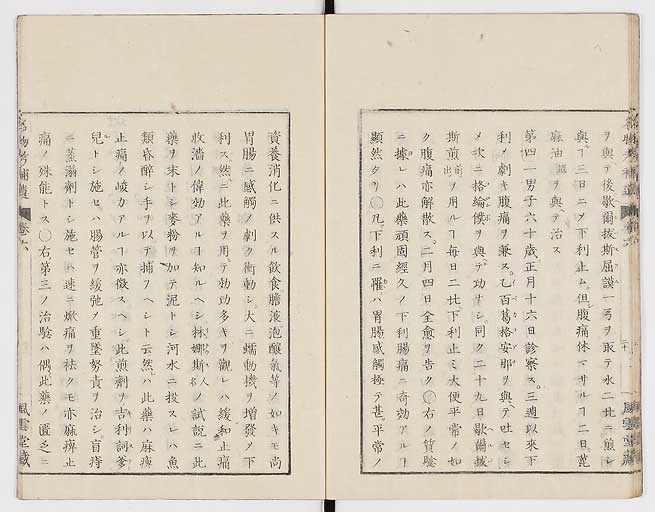 ヲ與テ後歇爾拔斯屈謨一弓ヲ取テ水二比ニ煎シ
與フ三日ニ〆下利止ム。但腹痛休マサルヿ二日。蓖
麻油ヲ與テ治ス
第四一男子六十歳。正月十六日診察ス。三週以來下
利シ劇キ腹痛ヲ兼ス。乙百葛格安那ヲ與テ吐セシ
メ次ニ格綸僕ヲ與テ功ナシ。同ク二十九日歇爾拔
斯煎ヲ用ルヿ毎日二比下利止ミ大便平常ノ如
ク腹痛亦解散ス。二月四日全愈ヲ告ク○右ノ質驗
ニ據レハ此藥頑固經久ノ下利腸痛ニ奇効アルヿ
顯然タリ○凡下利ニ罹ハ胃腸感觸極テ甚。平常ノ
資養消化ニ供スル飲食膽液泡釀氣等ノ如キモ尚
胃腸ニ感觸ノ劇ク衝動シ。大ニ蠕動機ヲ増發〆下
利ス然ニ此藥ヲ用テ効功多キヲ觀レハ緩和止痛
收濇ノ偉効アルヿ知ルヘシ抹娜斯人名ノ試説ニ此
藥ヲ末トシ麥粉ヲ加テ泥トシ河水ニ投スレハ魚
類昏醉シ手ヲ以テ捕フヘシト云。然ハ此藥ハ麻痺
止痛ノ峻力アルヿ亦徴スヘシ此煎劑ヲ吉利詞爹
兒トシ施セハ腸管ヲ緩弛〆重墜努責ヲ治シ。盲痔
ニ蒸溻劑トシ施セハ速ニ焮痛ヲ袪ク モ亦麻痺止
痛ノ殊能トス○右第三ノ治驗ハ偶此藥ノ匱乏ニ
名物考補遺 卷六
風雲堂藏